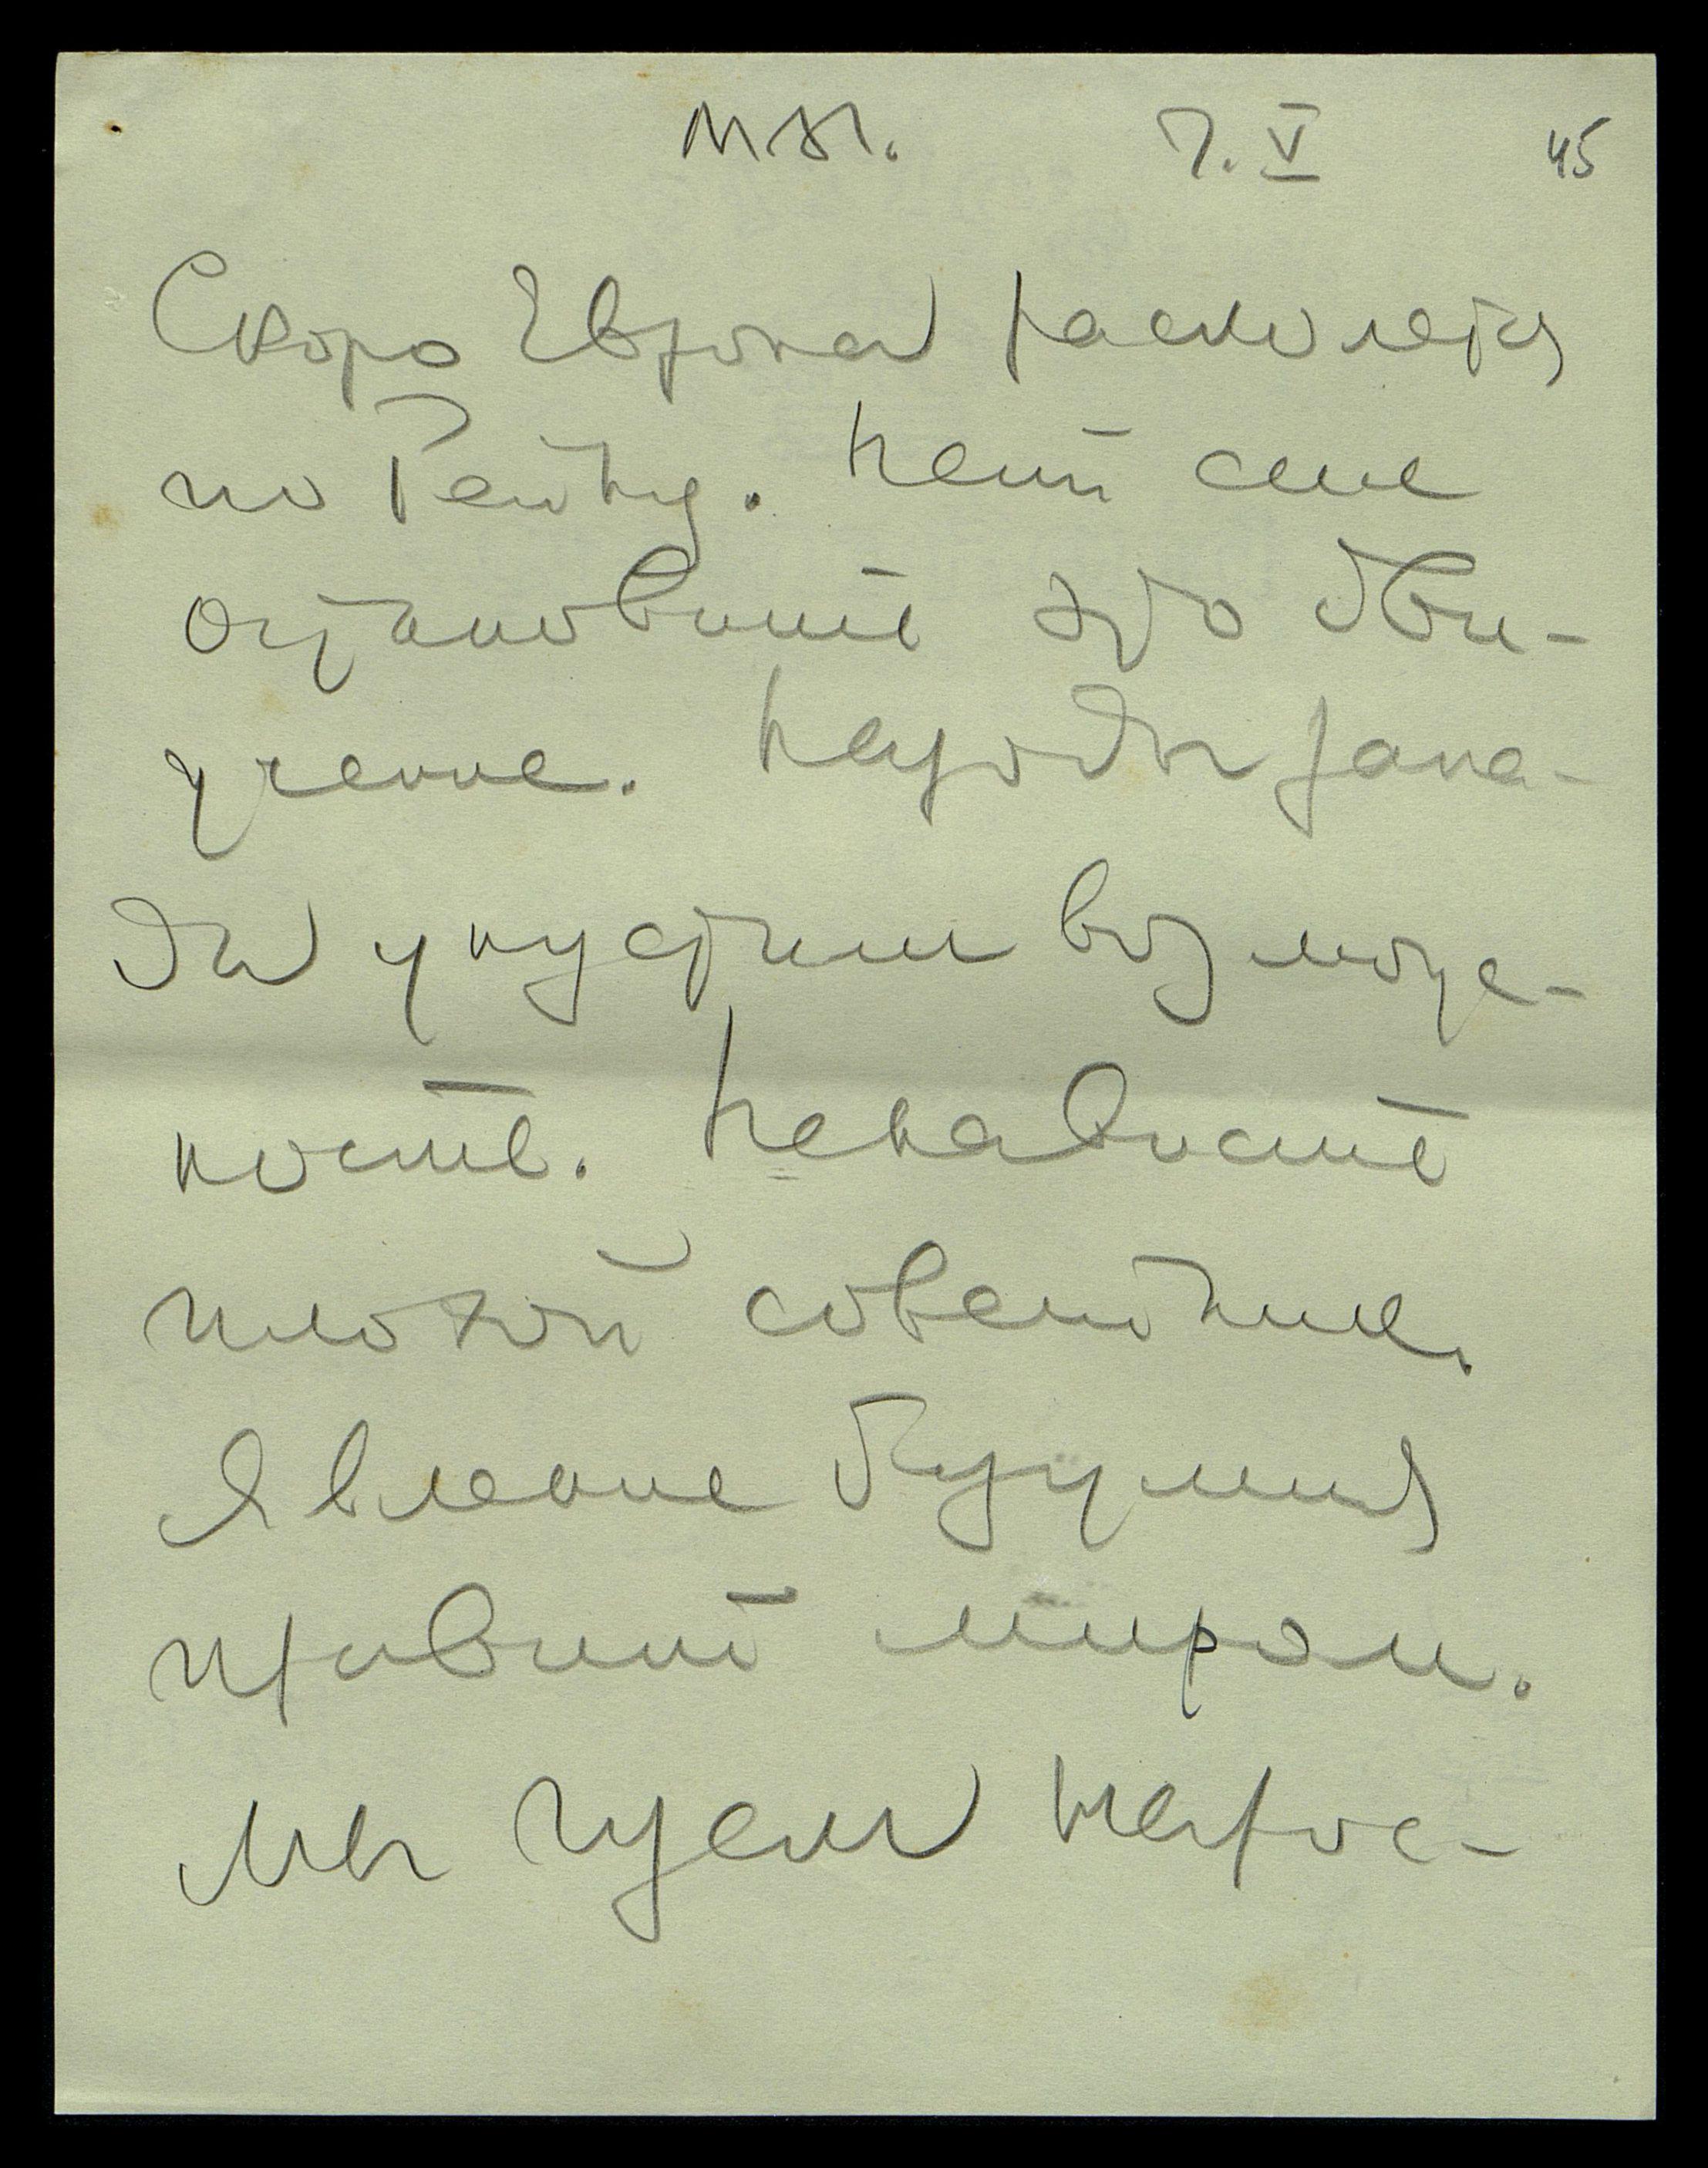 М.М. 7. V 45
Скоро Европа расколется
по Рейну. Нет сил
остановить это дви-
жение. Народы запа-
да упустили возмож-
ность. Ненависть
плохой советник.
Явление безумия
правит миром.
Мы чуем